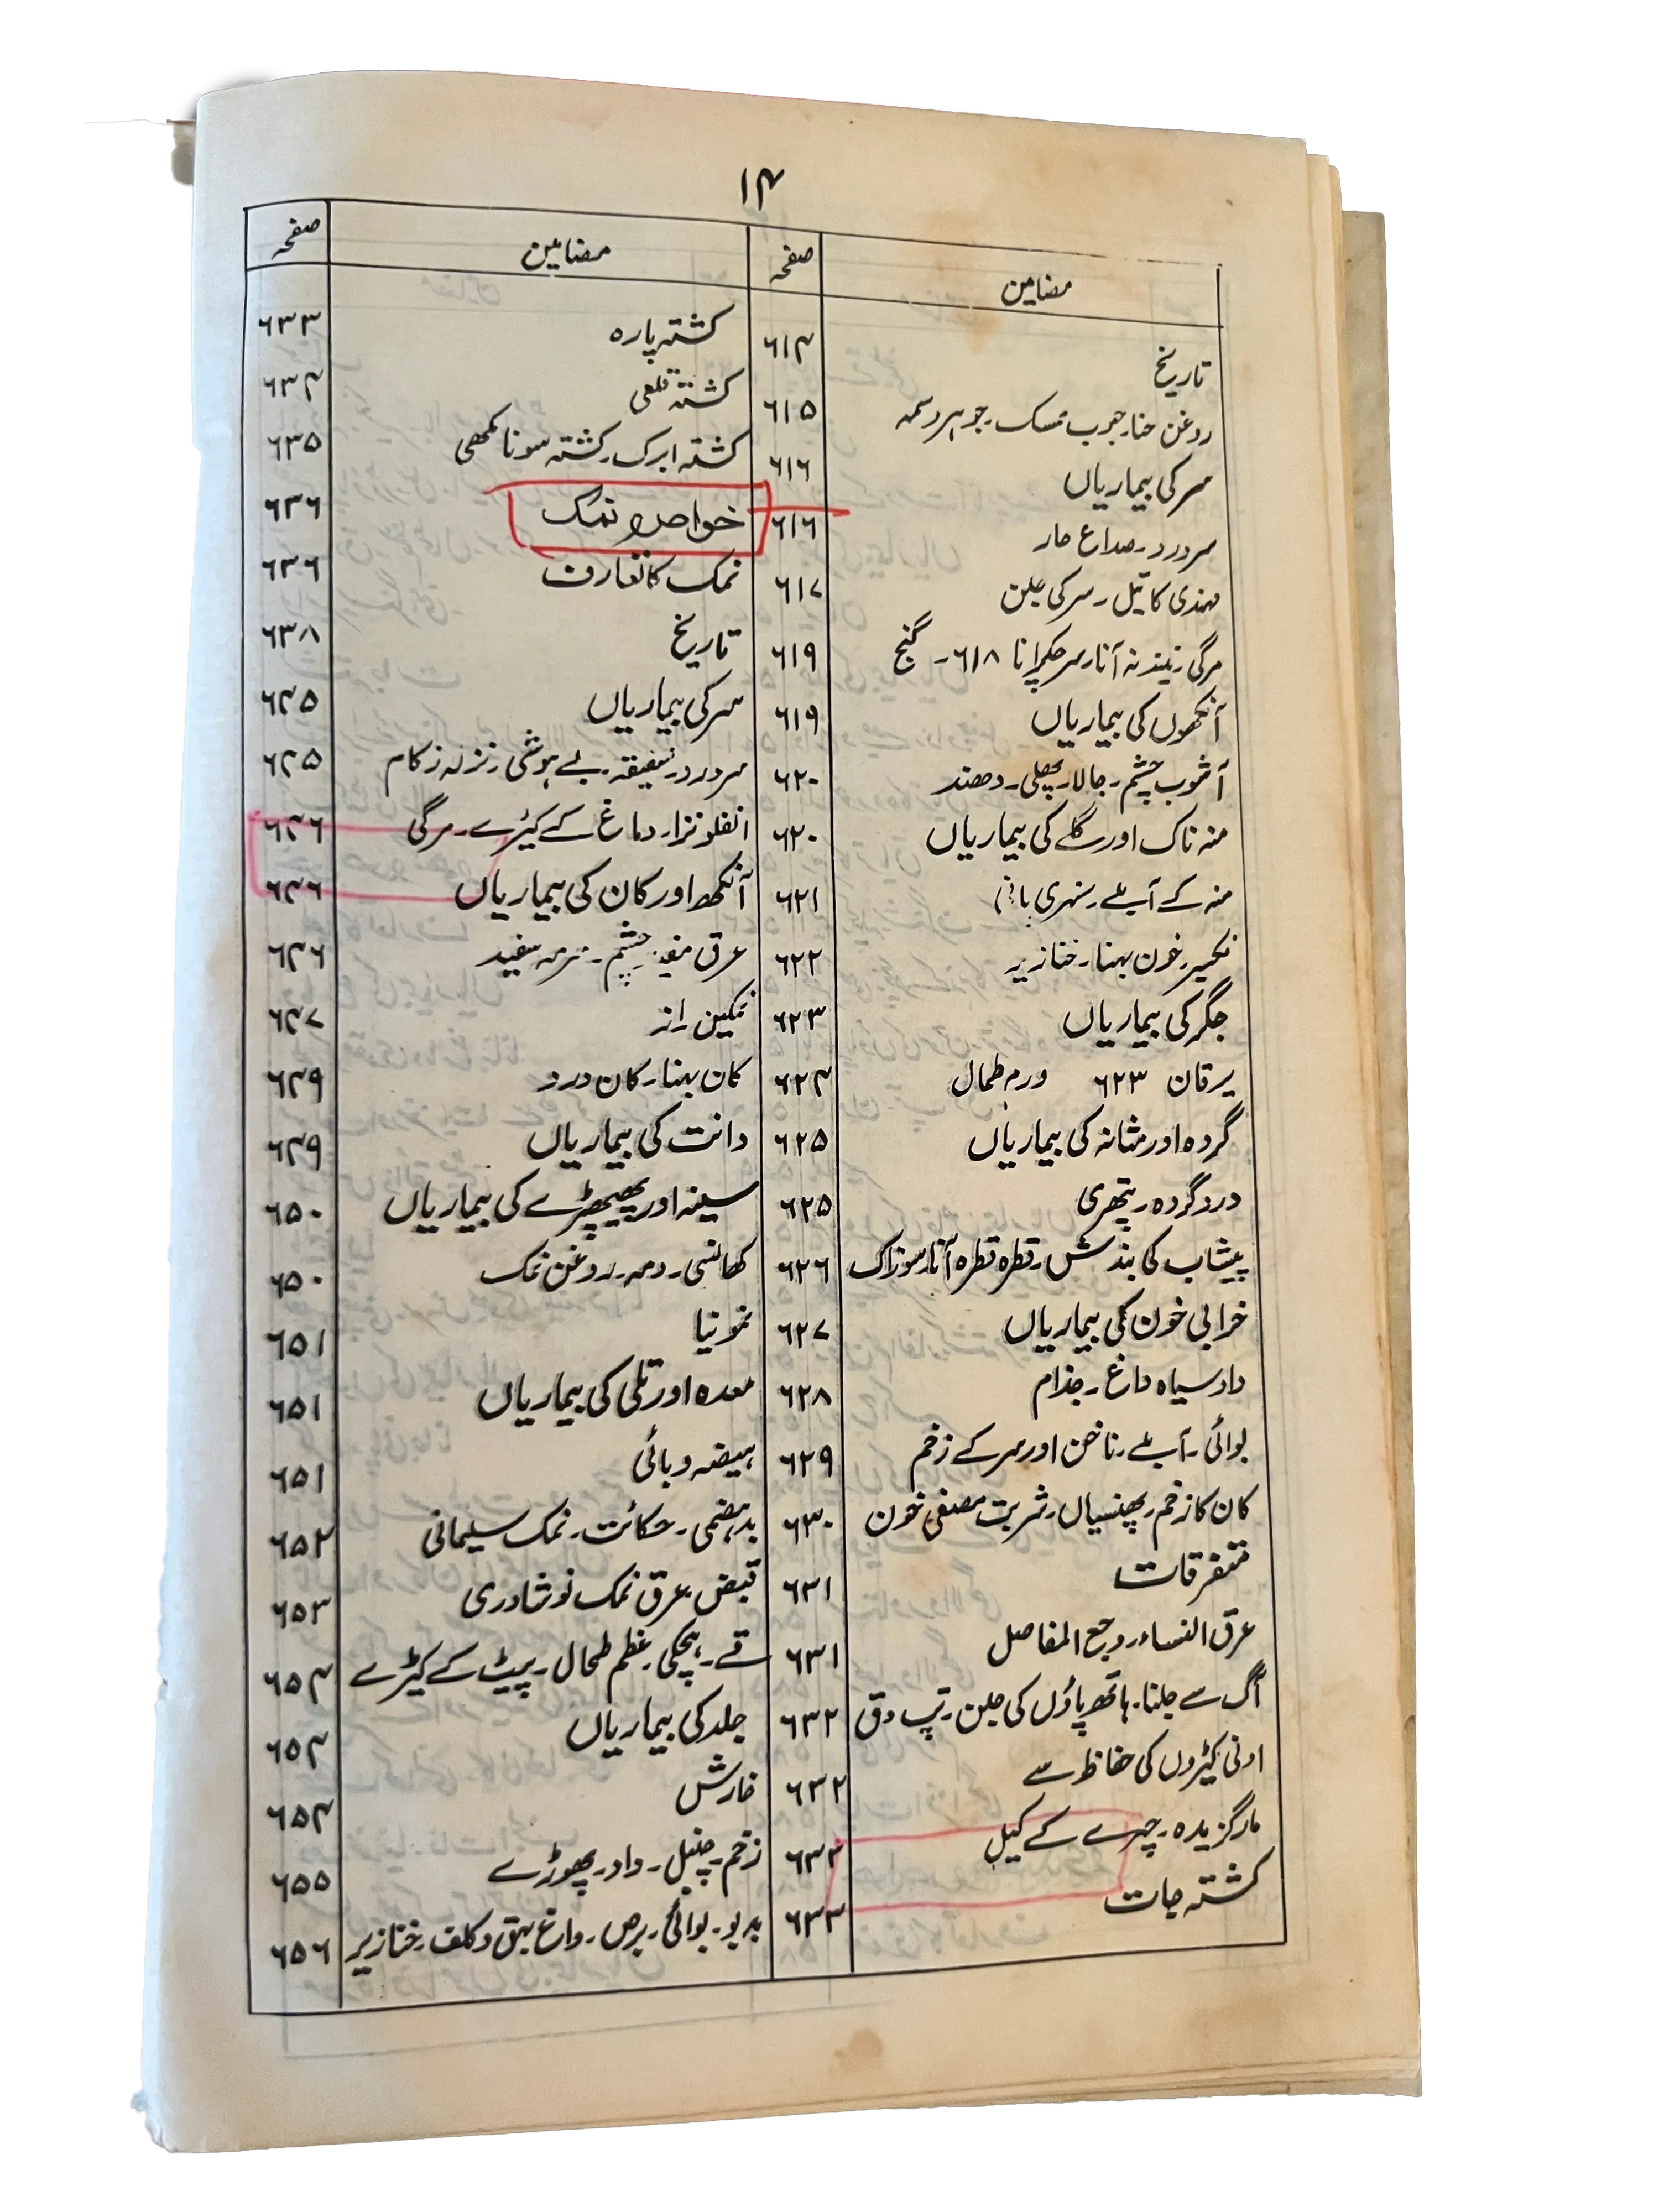 ۱۴
مضامین صفحہ
تاریخ ۶۱۴
روغن حنا۔ حبوب ممسک۔ جوہر وسمہ ۶۱۵
سر کی بیماریاں ۶۱۶
سردرد۔ صداع حار ۶۱۶
مہندی کا تیل۔ سر کی جلن ۶۱۷
مرگی۔ نیند نہ آنا۔ سر چکرانا ۶۱۸۔ گنج ۶۱۹
آنکھوں کی بیماریاں ۶۱۹
آشوب چشم۔ جالا۔ پھلی۔ دھند ۶۲۰
منہ ناک اور گلے کی بیماریاں ۶۲۰
منہ کے آبلے۔ سنہری ۶۲۱
نکسیر۔ خون بہنا۔ خنازیر ۶۲۲
جگر کی بیماریاں ۶۲۳
یرقان ۶۲۳ ورم طحال ۶۲۴
گردہ اور مثانہ کی بیماریاں ۶۲۵
درد گردہ۔ پتھری ۶۲۵
پیشاب کی بندش۔ قطرہ قطرہ آنا۔ سوزاک ۶۲۶
خرابی خون کی بیماریاں ۶۲۷
داد سیاہ داغ۔ جذام ۶۲۸
بوائی۔ آبلے۔ ناخن اور سر کے زخم ۶۲۹
کان کا زخم۔ پھنسیاں۔ شربت مصفی خون ۶۳۰
متفرقات ۶۳۱
عرق النساء۔ وجع المفاصل ۶۳۱
آگ سے جلنا۔ ہاتھ پاؤں کی جلن۔ تپ دق ۶۳۲
اونی کپڑوں کی حفاظ سے ۶۳۲
مارگزیدہ۔ چہرے کے کیل ۶۳۳
کشتہ جات ۶۳۳
مضامین صفحہ
کشتہ پارہ ۶۳۳
کشتہ قلعی ۶۳۴
کشتہ ابرک۔ کشتہ سونا مکھی ۶۳۵
خواص نمک ۶۳۶
نمک کا تعارف ۶۳۶
تاریخ ۶۳۸
سر کی بیماریاں ۶۴۵
سردرد۔ شقیقہ۔ بے ہوشی۔ نزلہ زکام ۶۴۵
انفلونزا۔ دماغ کے کیڑے۔ مرگی ۶۴۶
آنکھ اور کان کی بیماریاں ۶۴۶
عرق مفید چشم۔ سرمہ سفید ۶۴۶
نمکین راز ۶۴۷
کان بہنا۔ کان درد ۶۴۹
دانت کی بیماریاں ۶۴۹
سینہ اور پھیپھڑے کی بیماریاں ۶۵۰
کھانسی۔ دمہ۔ روغن نمک ۶۵۰
نمونیا ۶۵۱
معدہ اور تلی کی بیماریاں ۶۵۱
ہیضہ وبائی ۶۵۱
بدہضمی۔ حکائت۔ نمک سلیمانی ۶۵۲
قبض۔ عرق نمک نوشادری ۶۵۳
قے۔ ہچکی۔ عظم طحال۔ پیٹ کے کیڑے ۶۵۴
جلد کی بیماریاں ۶۵۴
خارش ۶۵۴
زخم۔ چنبل۔ داد۔ پھوڑے ۶۵۵
بدبو۔ بوائی۔ برص۔ داغ بہق و کلف۔ خنازیر ۶۵۶